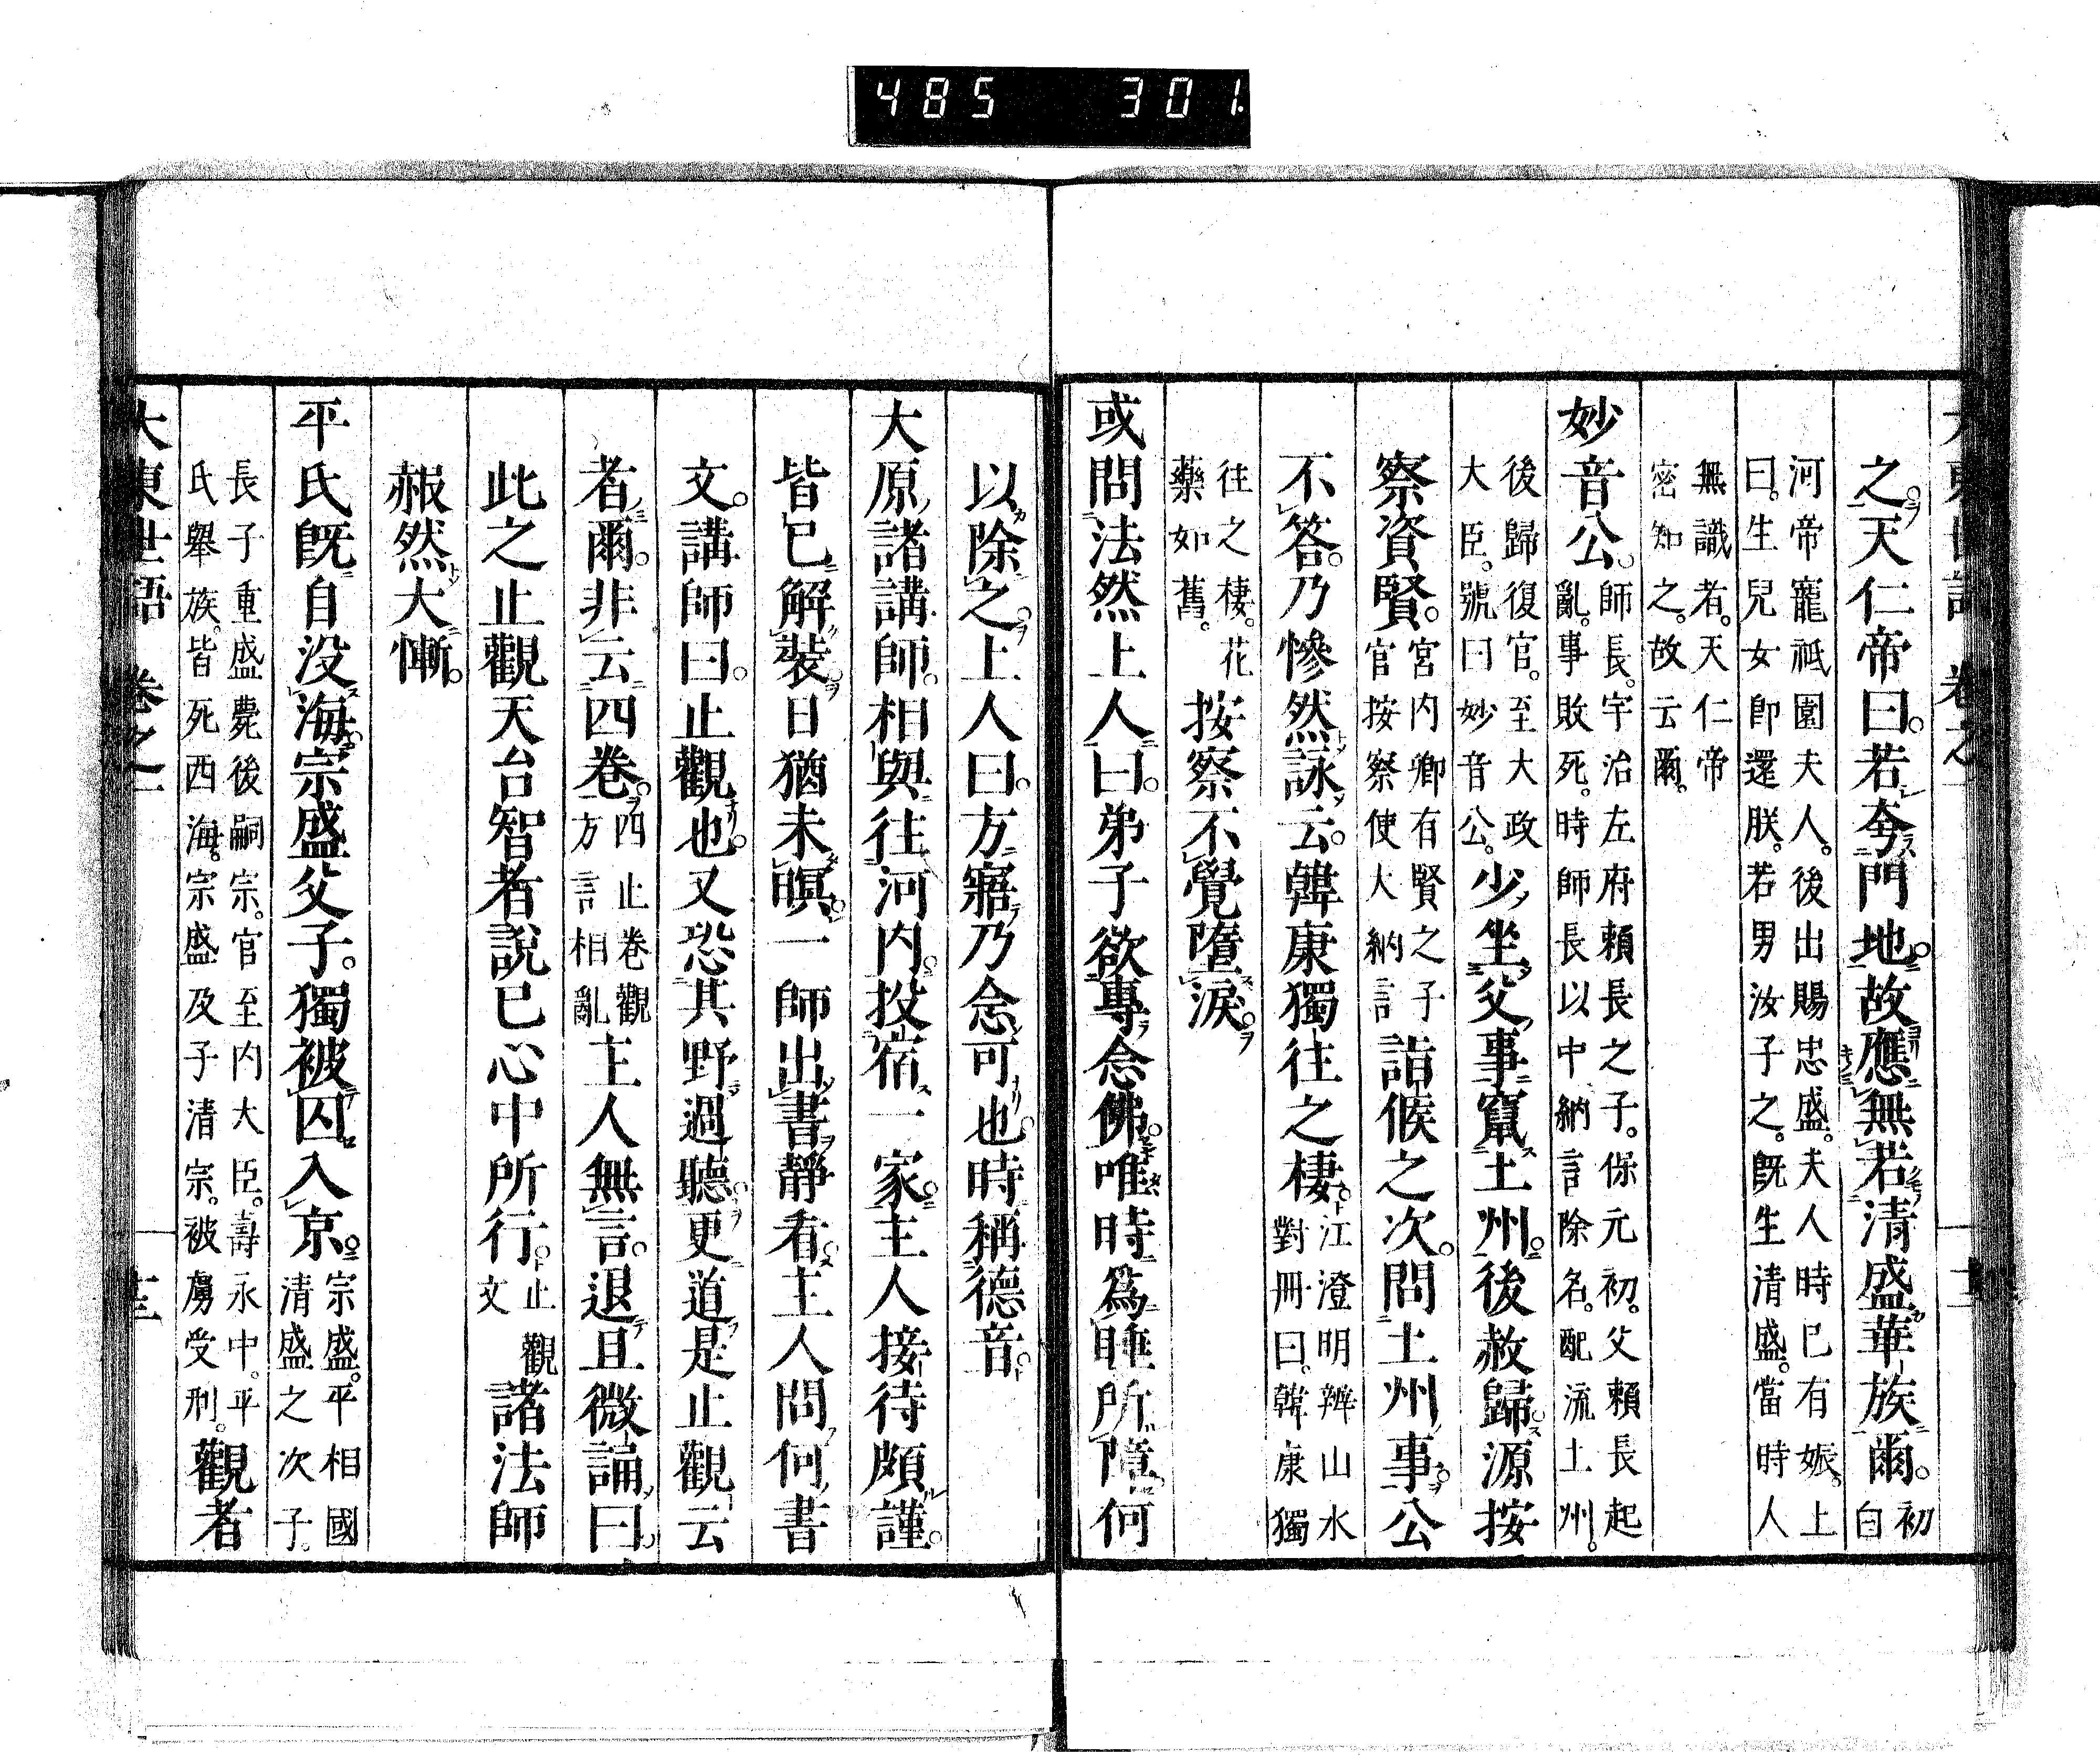 485 301
大東世語 卷之
之天仁帝曰。若夸門地。故應無若清盛華族爾。初白
河帝寵祗園夫人。後出賜忠盛。夫人時已有娠。上
曰。生兒女卽還朕。若男汝子之。旣生清盛。當時人
無識者。天仁帝
密知之。故云爾。
妙音公。師長。宇治左府賴長之子。保元初。父賴長起
亂。事敗死。時師長以中納言除名。配流土州。
後歸復官。至大政
大臣。號曰妙音公。少坐父事竄土州。後赦歸。源按
察資賢。宮内卿有賢之子
官按察使大納言詣候之次。問土州事。公
不答。乃慘然詠云。韓康獨往之棲。江澄明辨山水
對冊曰。韓康獨
往之棲。花
藥如舊。按察不覺墮淚。
或問法然上人曰。弟子欲專念佛。唯時爲睡所障。何
以除之。上人曰。方寤乃念可也。時稱德音。
大原諸講師。相與往河内。投宿一家。主人接待頗謹。
皆已解裝。日猶未暝。一師出書靜看。主人問何書
文。講師曰。止觀也。又恐其野過聽。更道是止觀云
者爾。非云四卷。四止卷觀
方言相亂主人無言。退且微誦曰。
此之止觀天台智者說己心中所行。止觀
文諸法師
赧然大慚。
平氏旣自没海。宗盛父子。獨被囚入京。宗盛。平相國
清盛之次子。
長子重盛薨後嗣宗。官至内大臣。壽永中。平
氏舉族。皆死西海。宗盛及子清宗。被虜受刑。觀者
大東世語 卷之二 十三